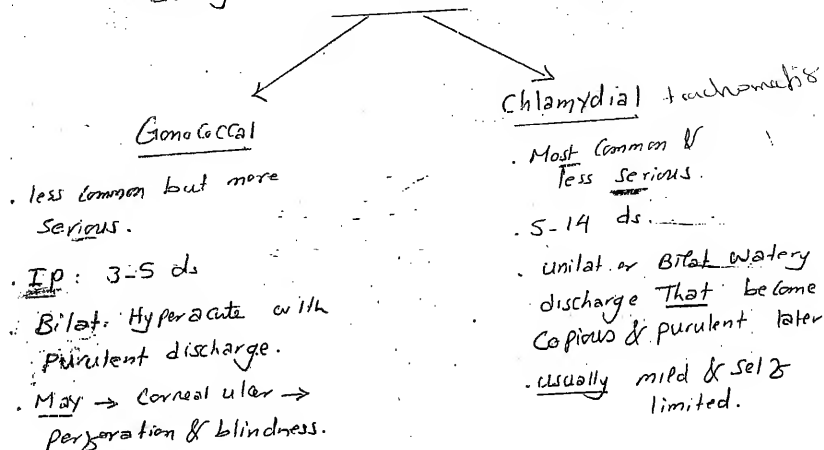 Gonococcal
. less common but more
serious.
. IP: 3-5 ds
. Bilat. Hyperacute with
purulent discharge.
. May → Corneal ulcer →
perforation & blindness.
Chlamydial trachomatis
. Most Common &
less serious.
. 5-14 ds.
. unilat. or Bilat watery
discharge That become
Copious & purulent later
. usually mild & self
limited.